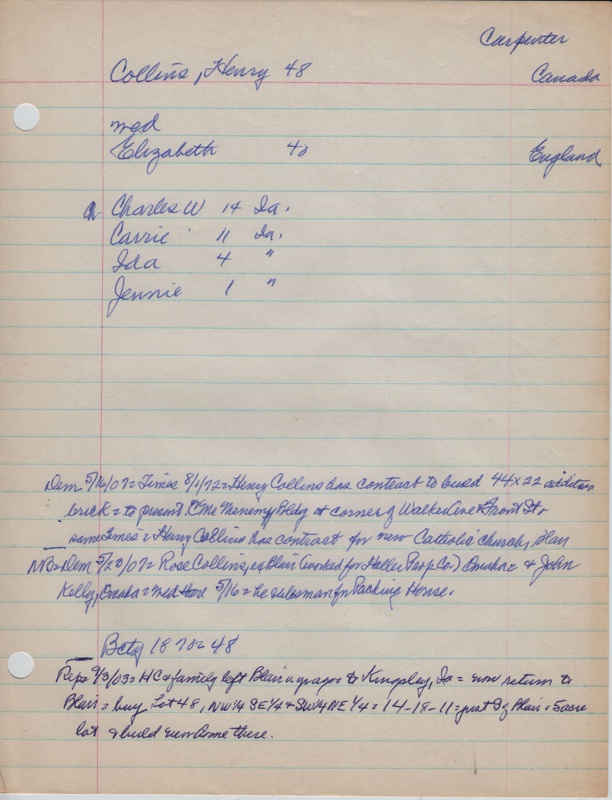 Carpenter
Collins, Henry 48 Canada
med
Elizabeth 40 England
Charles W 14 Ia.
Carrie 11 Ia.
Ida 4 "
Jennie 1 "
Dem 5/16/07 = Times 8/1/72 = Henry Collins has contract to build 44x22 addition
brick = to present Mc Menemy Bldg at corner of Walker Ave & Front St.
same Times = Henry Collins has contract for new Catholic church, Blair
NB = Dem 5/23/07 = Rose Collins, ex Blair (worked for Haller Prop Co.) Omaha = & John
Kelly, Omaha = med 5/16 = he salesman for Packing House.
Bcty 1870 = 48
Rep = 9/3/03 = HC & family left Blair yr ago = to Kingsley, Ia = now return to
Blair = buy Lot 48, NW¼ SE¼ & SW¼ NE¼ = 14-18-11 = just S of Blair = 5 acre
lot & build home there.